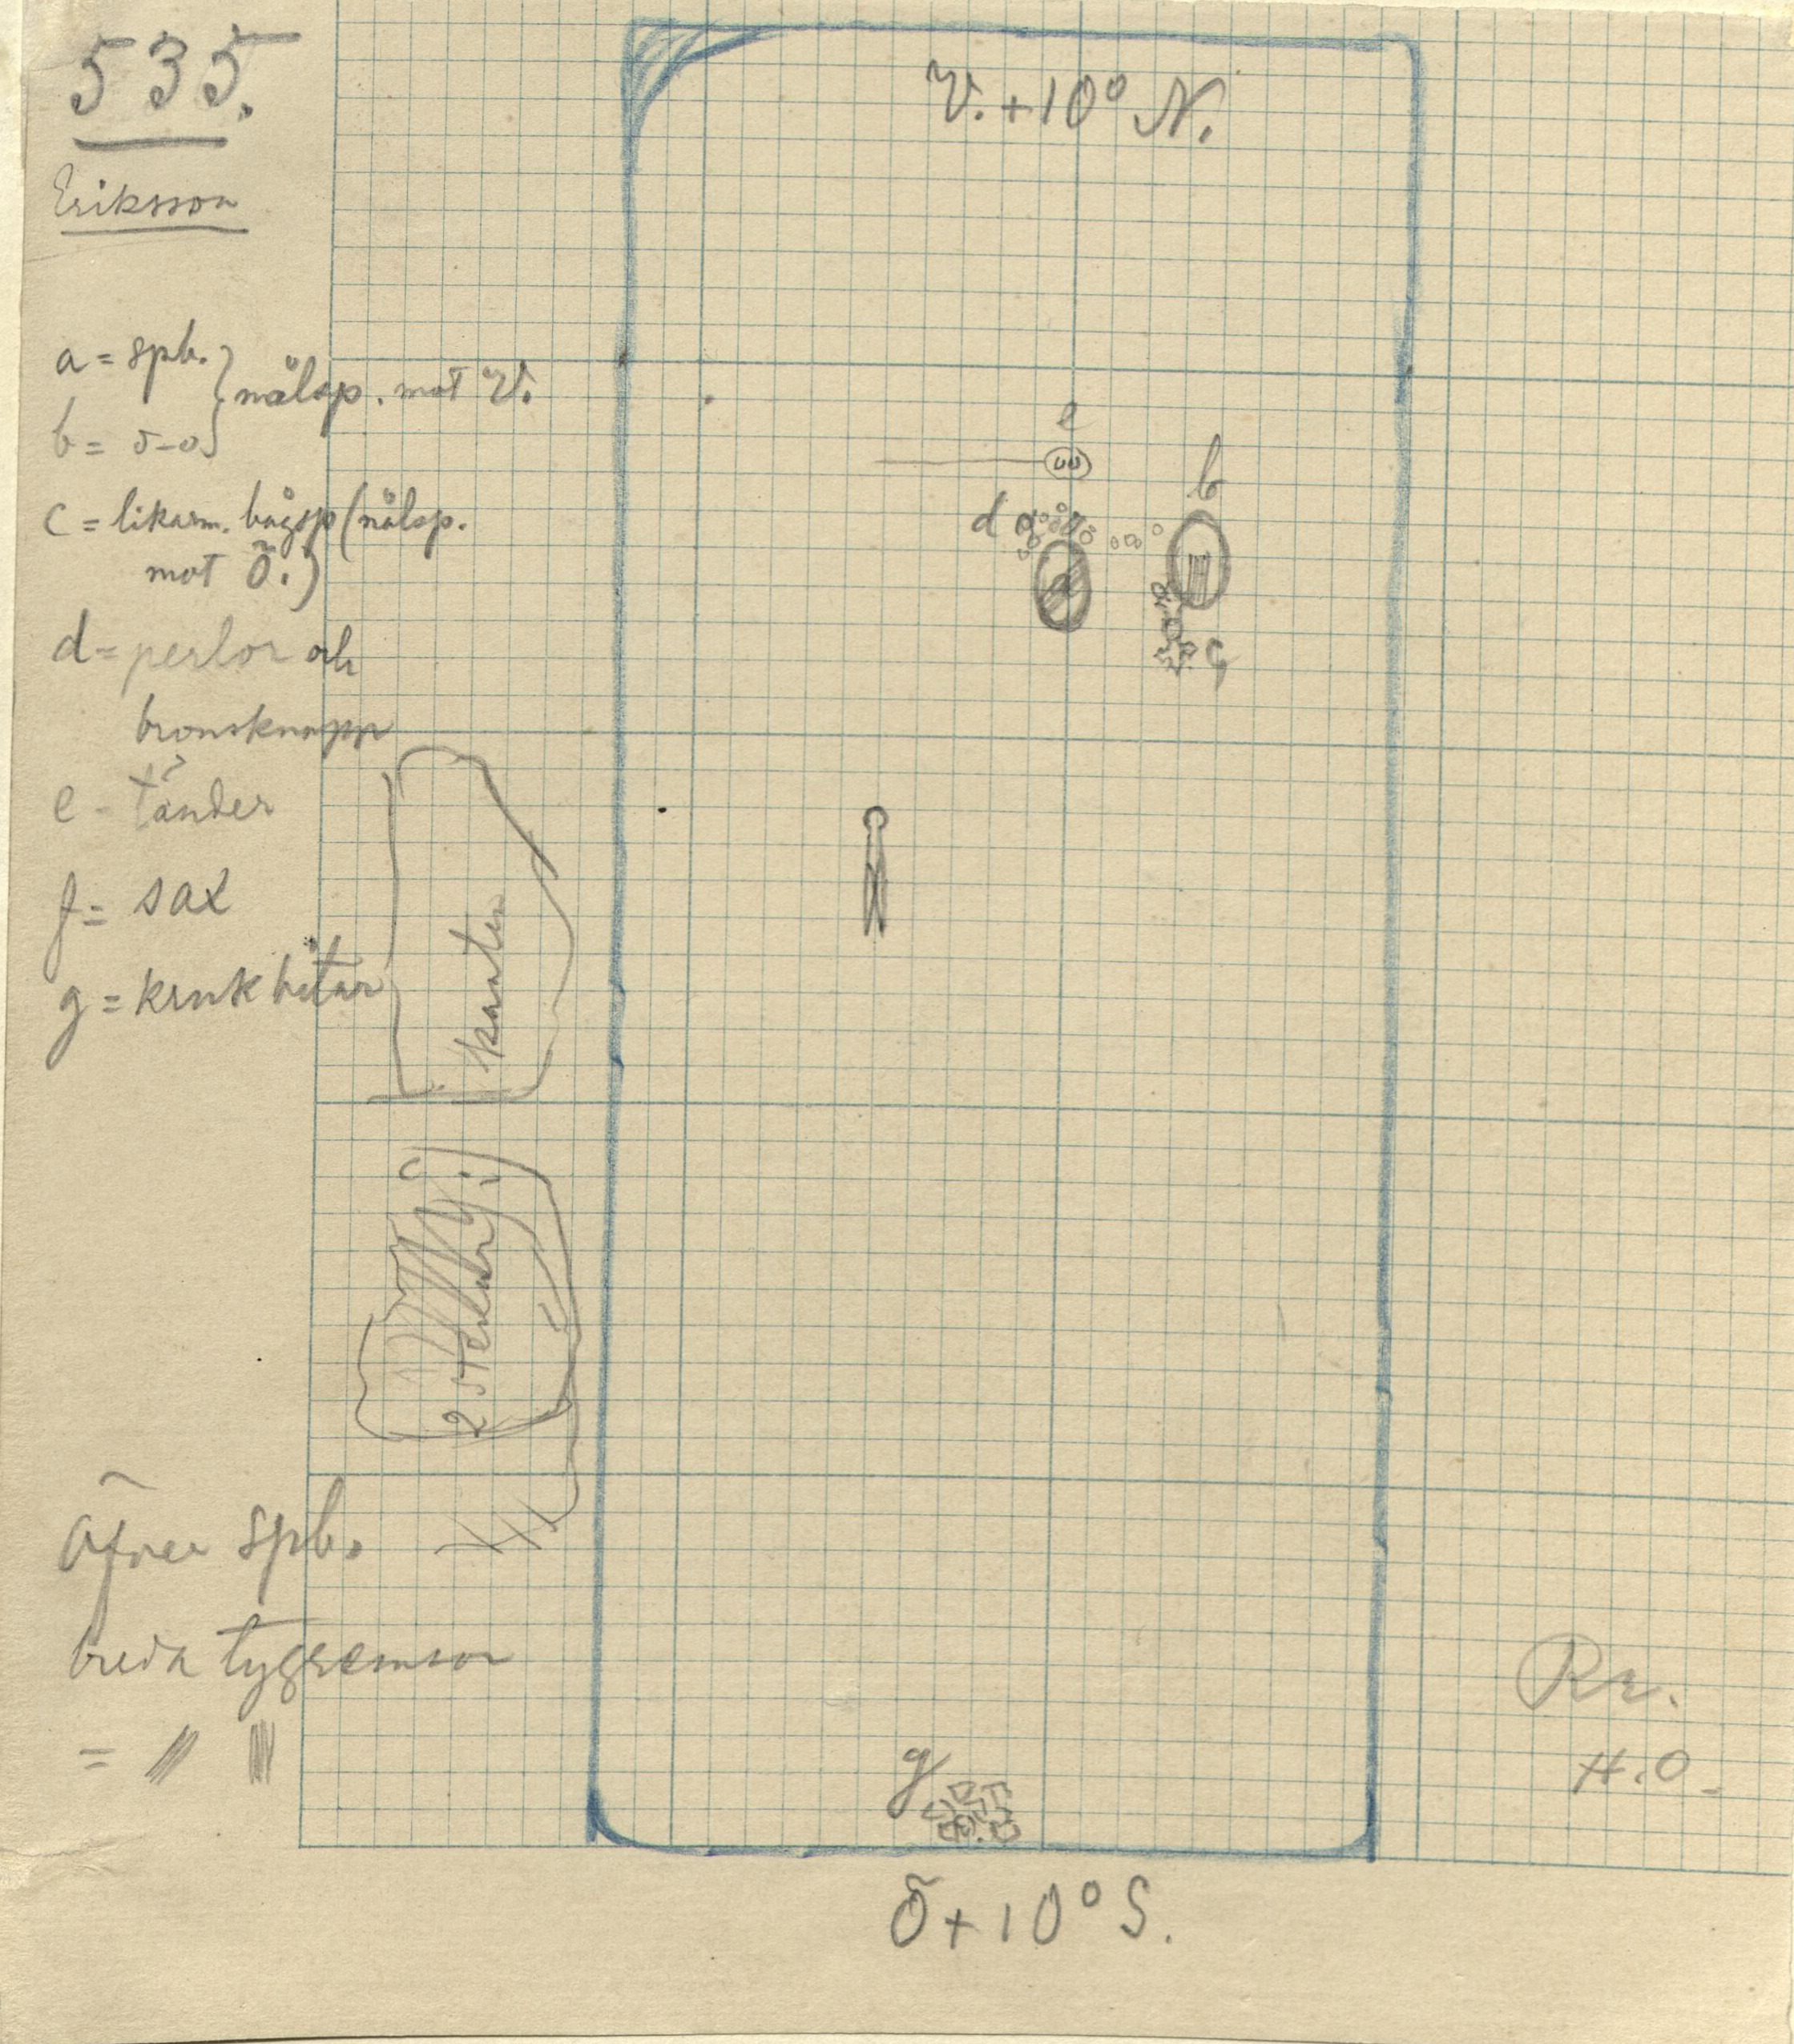 535.
Eriksson
V. + 10° N.
a = spb. } nålsp. mot V.
b = d-o }
c = likarm. bågsp (nålsp.
mot Ö.)
d = perlor och
bronsknapp
e - tänder
f = sax
g = krukbitar
e
b
d
a
c
kanten
c
2
g
Öfver spb.
breda tygremsor
=
Rr.
H.O.
Ö + 10° S.